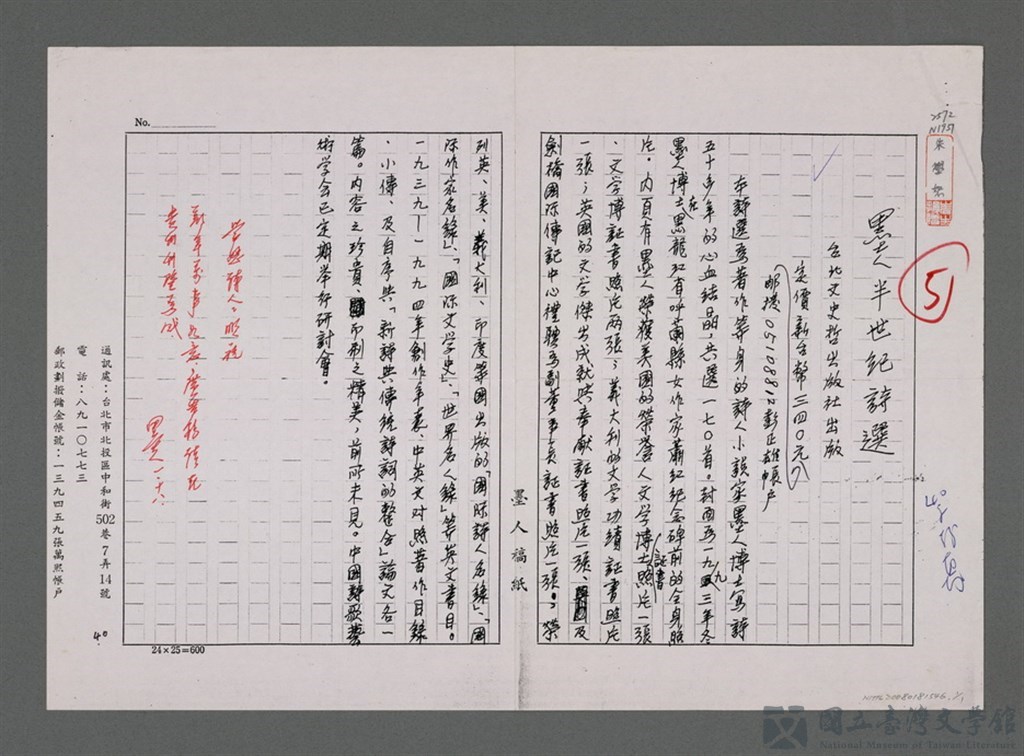 2572
N1951
朱學恕
51
墨人半世紀詩選
台北文史哲出版社出版
定價新台幣三四〇元
郵撥05108812彭正雄帳戶
本詩選爲著作等身的詩人小說家墨人博士寫詩
五十多年的心血結晶,共選一七〇首。封面爲一九九三年冬
墨人博士在黑龍江省呼蘭縣女作家蕭紅紀念碑前的全身照
片。內頁有墨人榮獲美國的榮譽人文學博士證書照片一張
、文学博士証書照片兩張;義大利的文学功績証書照片
一張;英國的文学傑出成就與奉獻証書照片一張、及
劍橋國际傳記中心禮聘爲副董事長証書照片一張。;榮
列英、美、義大利、印度等國出版的「國际詩人名錄」、「國
际作家名錄」、「國际文学史」、「世界名人錄」等英文書目。
一九三九—一九九四年創作年表、中英文对照著作目錄
、小傳、及自序與「新詩與傳統詩詞的整合」論文各一
篇。内容之珍貴、印刷之精美,前所未見。中國詩歌藝
術学会已定期举行研討會。
学恕詩人:順祝
墨人一.六.
墨人稿紙
通訊處:台北市北投區中和街502巷7弄14號
電話:八九一〇七七三
郵政劃撥儲金帳號:一三九四五九張萬熙帳戶
No.
24×25=600
40
國立臺灣文學館
National Museum of Taiwan Literature